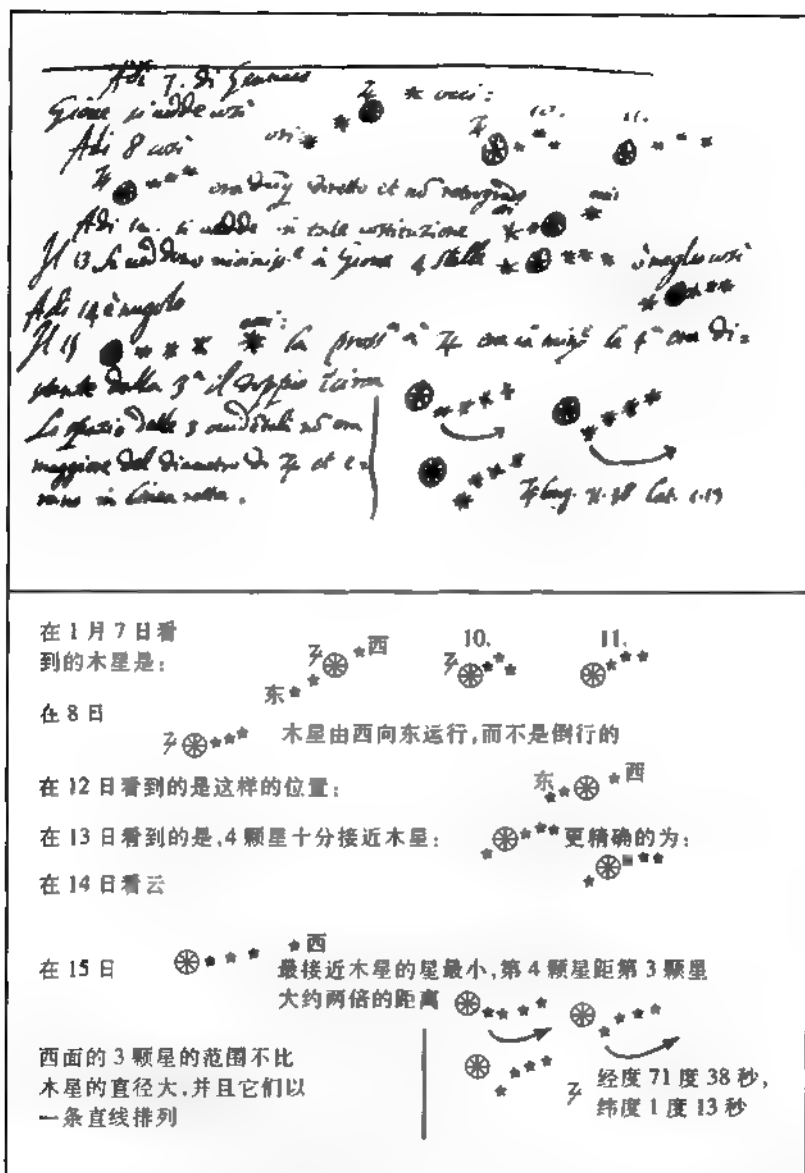 Adi 7. di Gennaio
Gioue si uedde così
Adi 8 così
10. 11.
era diretto et nõ retrogrado
Adi 12. si uedde in tale costituzione
Il 13 si ueddono à Gioue 4 stelle meglio così
Adi 14 è nugolo
Il 15 la 4ª era di=
stante dalla 3ª il doppio
Lo spazio delle 3 occidentali nõ era
maggiore del diametro di ♃ et e=
rano in linea retta.
♃ long. 71.38 Lat. 1.13
在 1 月 7 日看
到的木星是:
♃ 西 东
♃ 10. 11.
在 8 日
♃ 木星由西向东运行,而不是倒行的
在 12 日看到的是这样的位置: 东 西
在 13 日看到的是,4 颗星十分接近木星: 更精确的为:
在 14 日看云
在 15 日 西
最接近木星的星最小,第 4 颗星距第 3 颗星
大约两倍的距离
西面的 3 颗星的范围不比
木星的直径大,并且它们以
一条直线排列
♃ 经度 71 度 38 秒,
纬度 1 度 13 秒